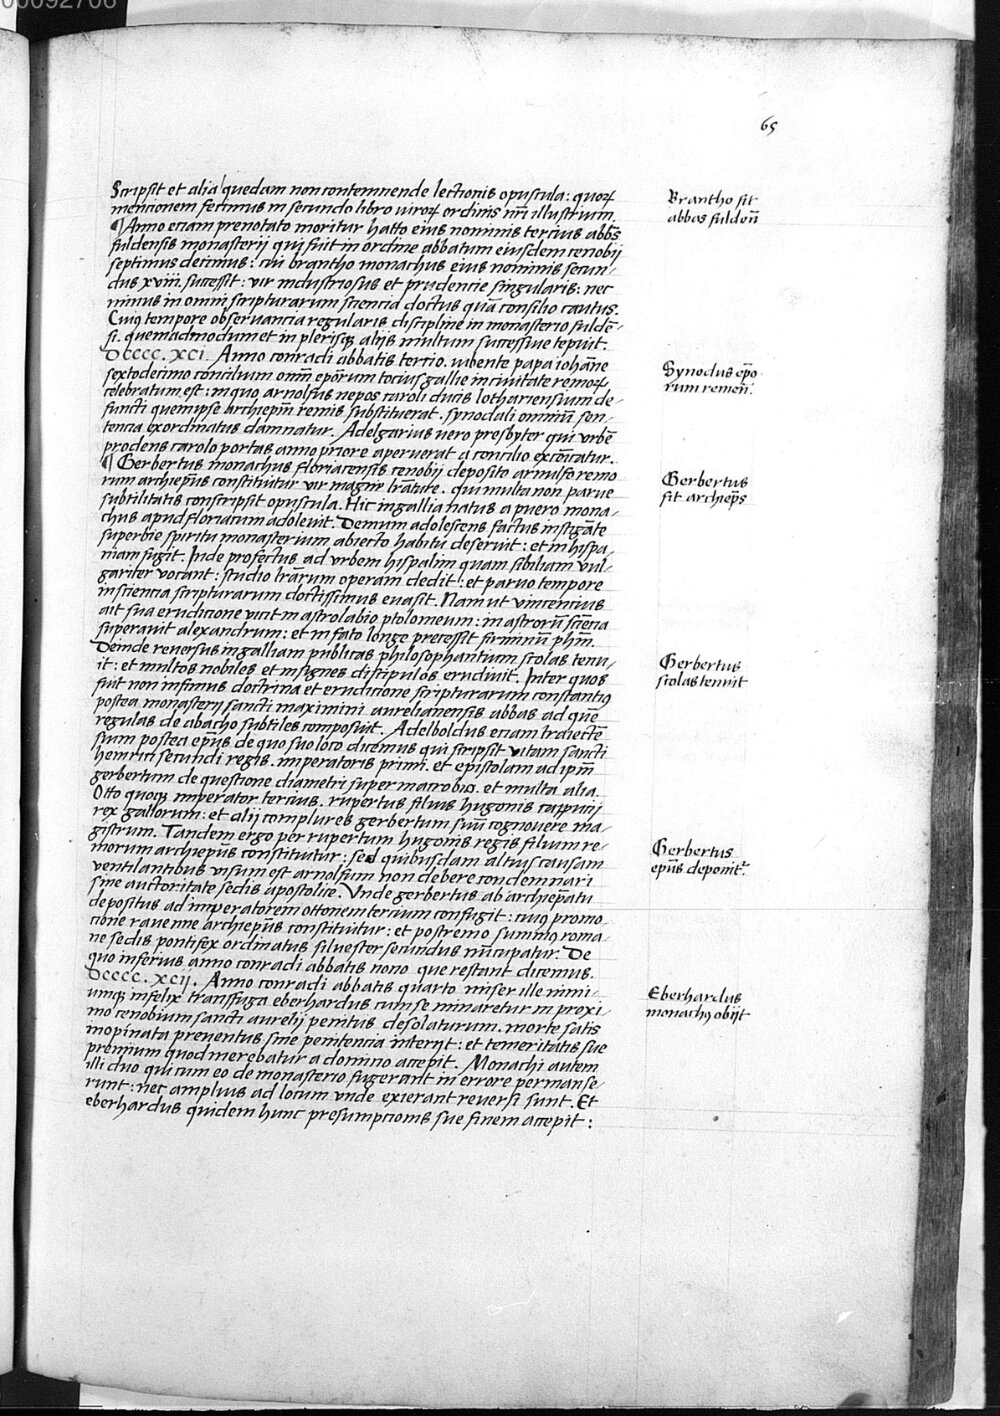 65
Scripsit et alia quedam non contemnende lectionis opuscula: quoꝝ
mencionem fecimus in secundo libro uiroꝝ ordinis nr̄i illustrium.
¶ Anno eciam prenotato moritur hatto eius nominis tercius abb̄s
fuldensis monasterij qui fuit in ordine abbatum eiusdem cenobij
septimus decimus: cui brantho monachus eius nominis secun/
dus xviij. successit: vir industriosus et prudencie singularis: nec
minus in omni scripturarum sciencia doctus quā consilio cautus.
Cuiꝯ tempore obseruancia regularis discipline in monasterio fuldē/
si. quemadmodum et in plerisqꝫ alijs multum successiue tepuit.
Dcccc.xci. Anno conradi abbatis tercio. iubente papa iohāne
sextodecimo concilium om̄m ep̄orum tocius gallie in ciuitate remoꝝ
celebratum est: in quo arnolfus nepos caroli ducis lothariensium de/
functi quem ipse archiep̄m remis substituerat. synodali omniū sen/
tencia exordinatus damnatur. Adelgarius uero presbyter qui vrbē
prodens carolo portas anno priore aperuerat a concilio excōicatur.
¶ Gerbertus monachus floriacensis cenobij deposito arnulfo remo
rum archiep̄us constituitur vir magne lr̄ature. qui multa non parue
subtilitatis conscripsit opuscula. Hic in gallia natus a puero mona/
chus apud floriacum adoleuit. Demum adolescens factus instigāte
superbie spiritu monasterium abiecto habitu deseruit: et in hispa/
niam fugit. Inde profectus ad vrbem hispalim quam sibiliam vul/
gariter vocant: studio lr̄arum operam dedit: et paruo tempore
in sciencia scripturarum doctissimus euasit. Nam ut vincencius
ait sua erudicione vicit in astrolabio ptolomeum: in astrorū sciēcia
superauit alexandrum: et in fato longe precessit firminū ph̄m.
Deinde reuersus in galliam publicas philosophantium scolas tenu/
it: et multos nobiles et insignes discipulos erudiuit. Inter quos
fuit non infimus doctrina et erudicione scripturarum constantiꝯ
postea monasterij sancti maximini aurelianensis abbas ad quē
regulas de abacho subtiles composuit. Adelboldus eciam traiectē
sium postea ep̄us de quo suo loco dicemus qui scripsit vitam sancti
heinrici secundi regis. imperatoris primi. et epistolam ad ip̄m
gerbertum de questione diametri super macrobiū. et multa alia.
Otto quoqꝫ imperator tercius. rupertus filius hugonis capucij
rex gallorum: et alij complures gerbertum suū cognouere ma/
gistrum. Tandem ergo per rupertum hugonis regis filium re/
morum archiep̄us constituitur: sed quibusdam altius causam
ventilantibus visum est arnolfum non debere condemnari
sine auctoritate sedis apostolice. Vnde gerbertus ab archiep̄atu
depositus ad imperatorem ottonem tercium confugit: cuiꝯ promo
cione rauenne archiep̄us constituitur: et postremo summꝯ roma/
ne sedis pontifex ordinatus siluester secundus nūcupatur. De
quo inferius anno conradi abbatis nono que restant dicemus.
Dcccc.xcij. Anno conradi abbatis quarto miser ille nimi/
umqꝫ infelix transfuga eberhardus cum se minaretur in proxi/
mo cenobium sancti aurelij penitus desolaturum. morte satis
inopinata preuentus sine penitencia interijt: et temeritatis sue
premium quod merebatur a domino accepit. Monachi autem
illi duo qui cum eo de monasterio fugerant in errore permanse/
runt: nec amplius ad locum vnde exierant reuersi sunt. Et
eberhardus quidem hunc presumpcionis sue finem accepit:
Brantho fit
abbas fulden̄
Synodus ep̄o
rum remen̄.
Gerbertus
fit archiep̄s
Gerbertus
scolas tenuit
Gerbertus
ep̄us deponit᷑.
Eberhardus
monachꝯ obijt